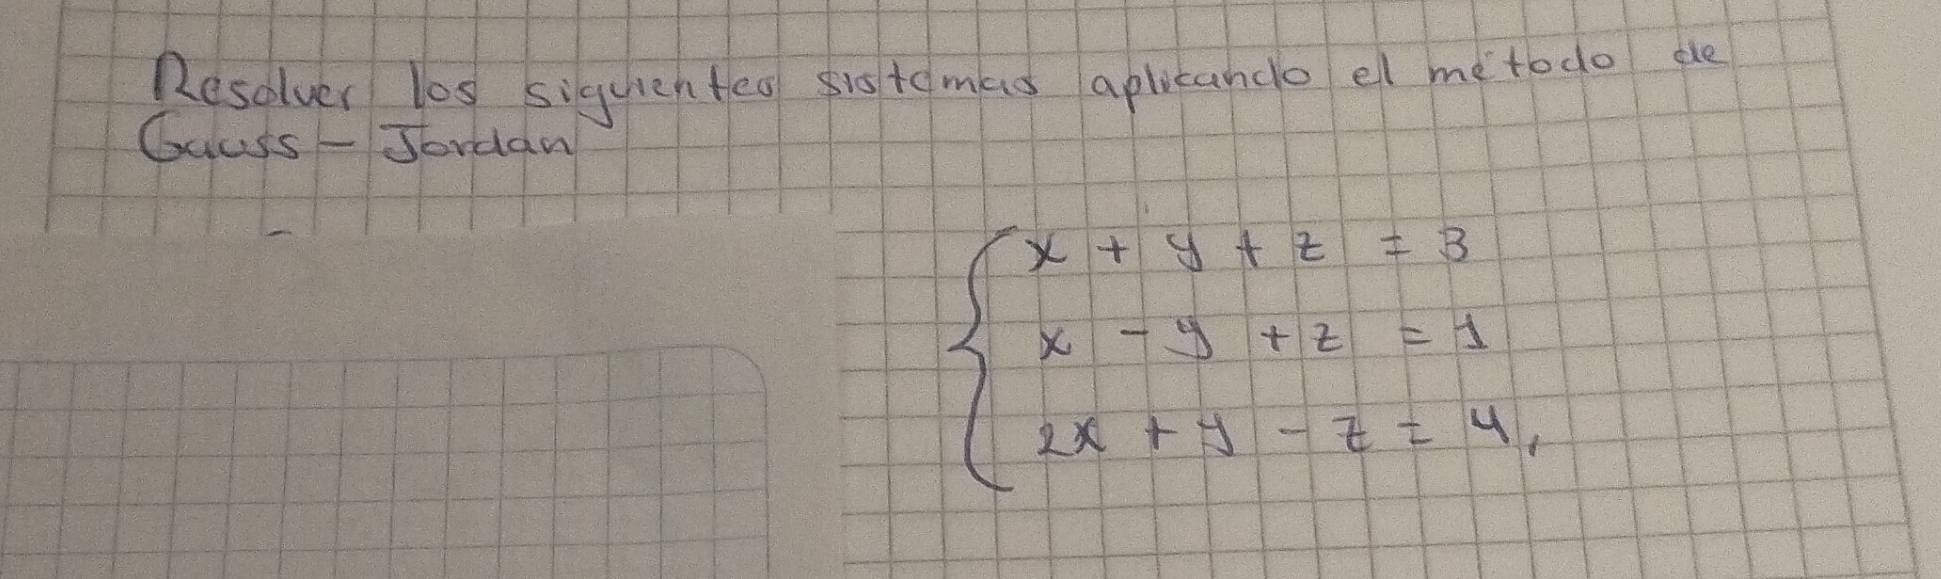 Resolver los siguientes sistemas aplicando el método de
Gauss - Jordan
x + y + z = 3
x - y + z = 1
2x + y - z = 4,